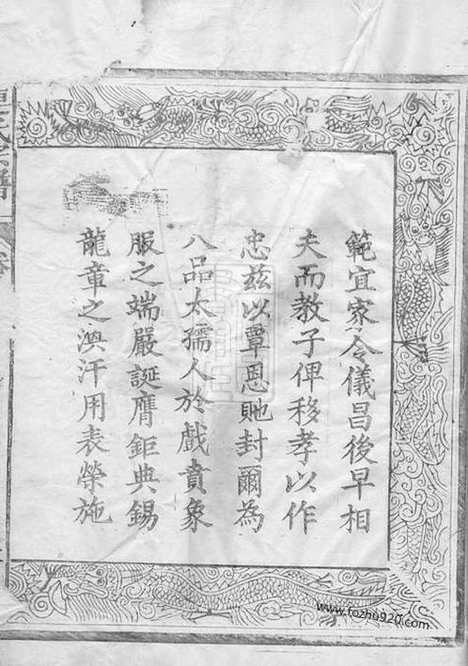 範宜家令儀昌後早相
夫而教子俾移孝以作
忠茲以覃恩貤封爾為
八品太孺人於戲賁象
服之端嚴誕膺鉅典錫
龍章之渙汗用表榮施
www.fozhu920.com